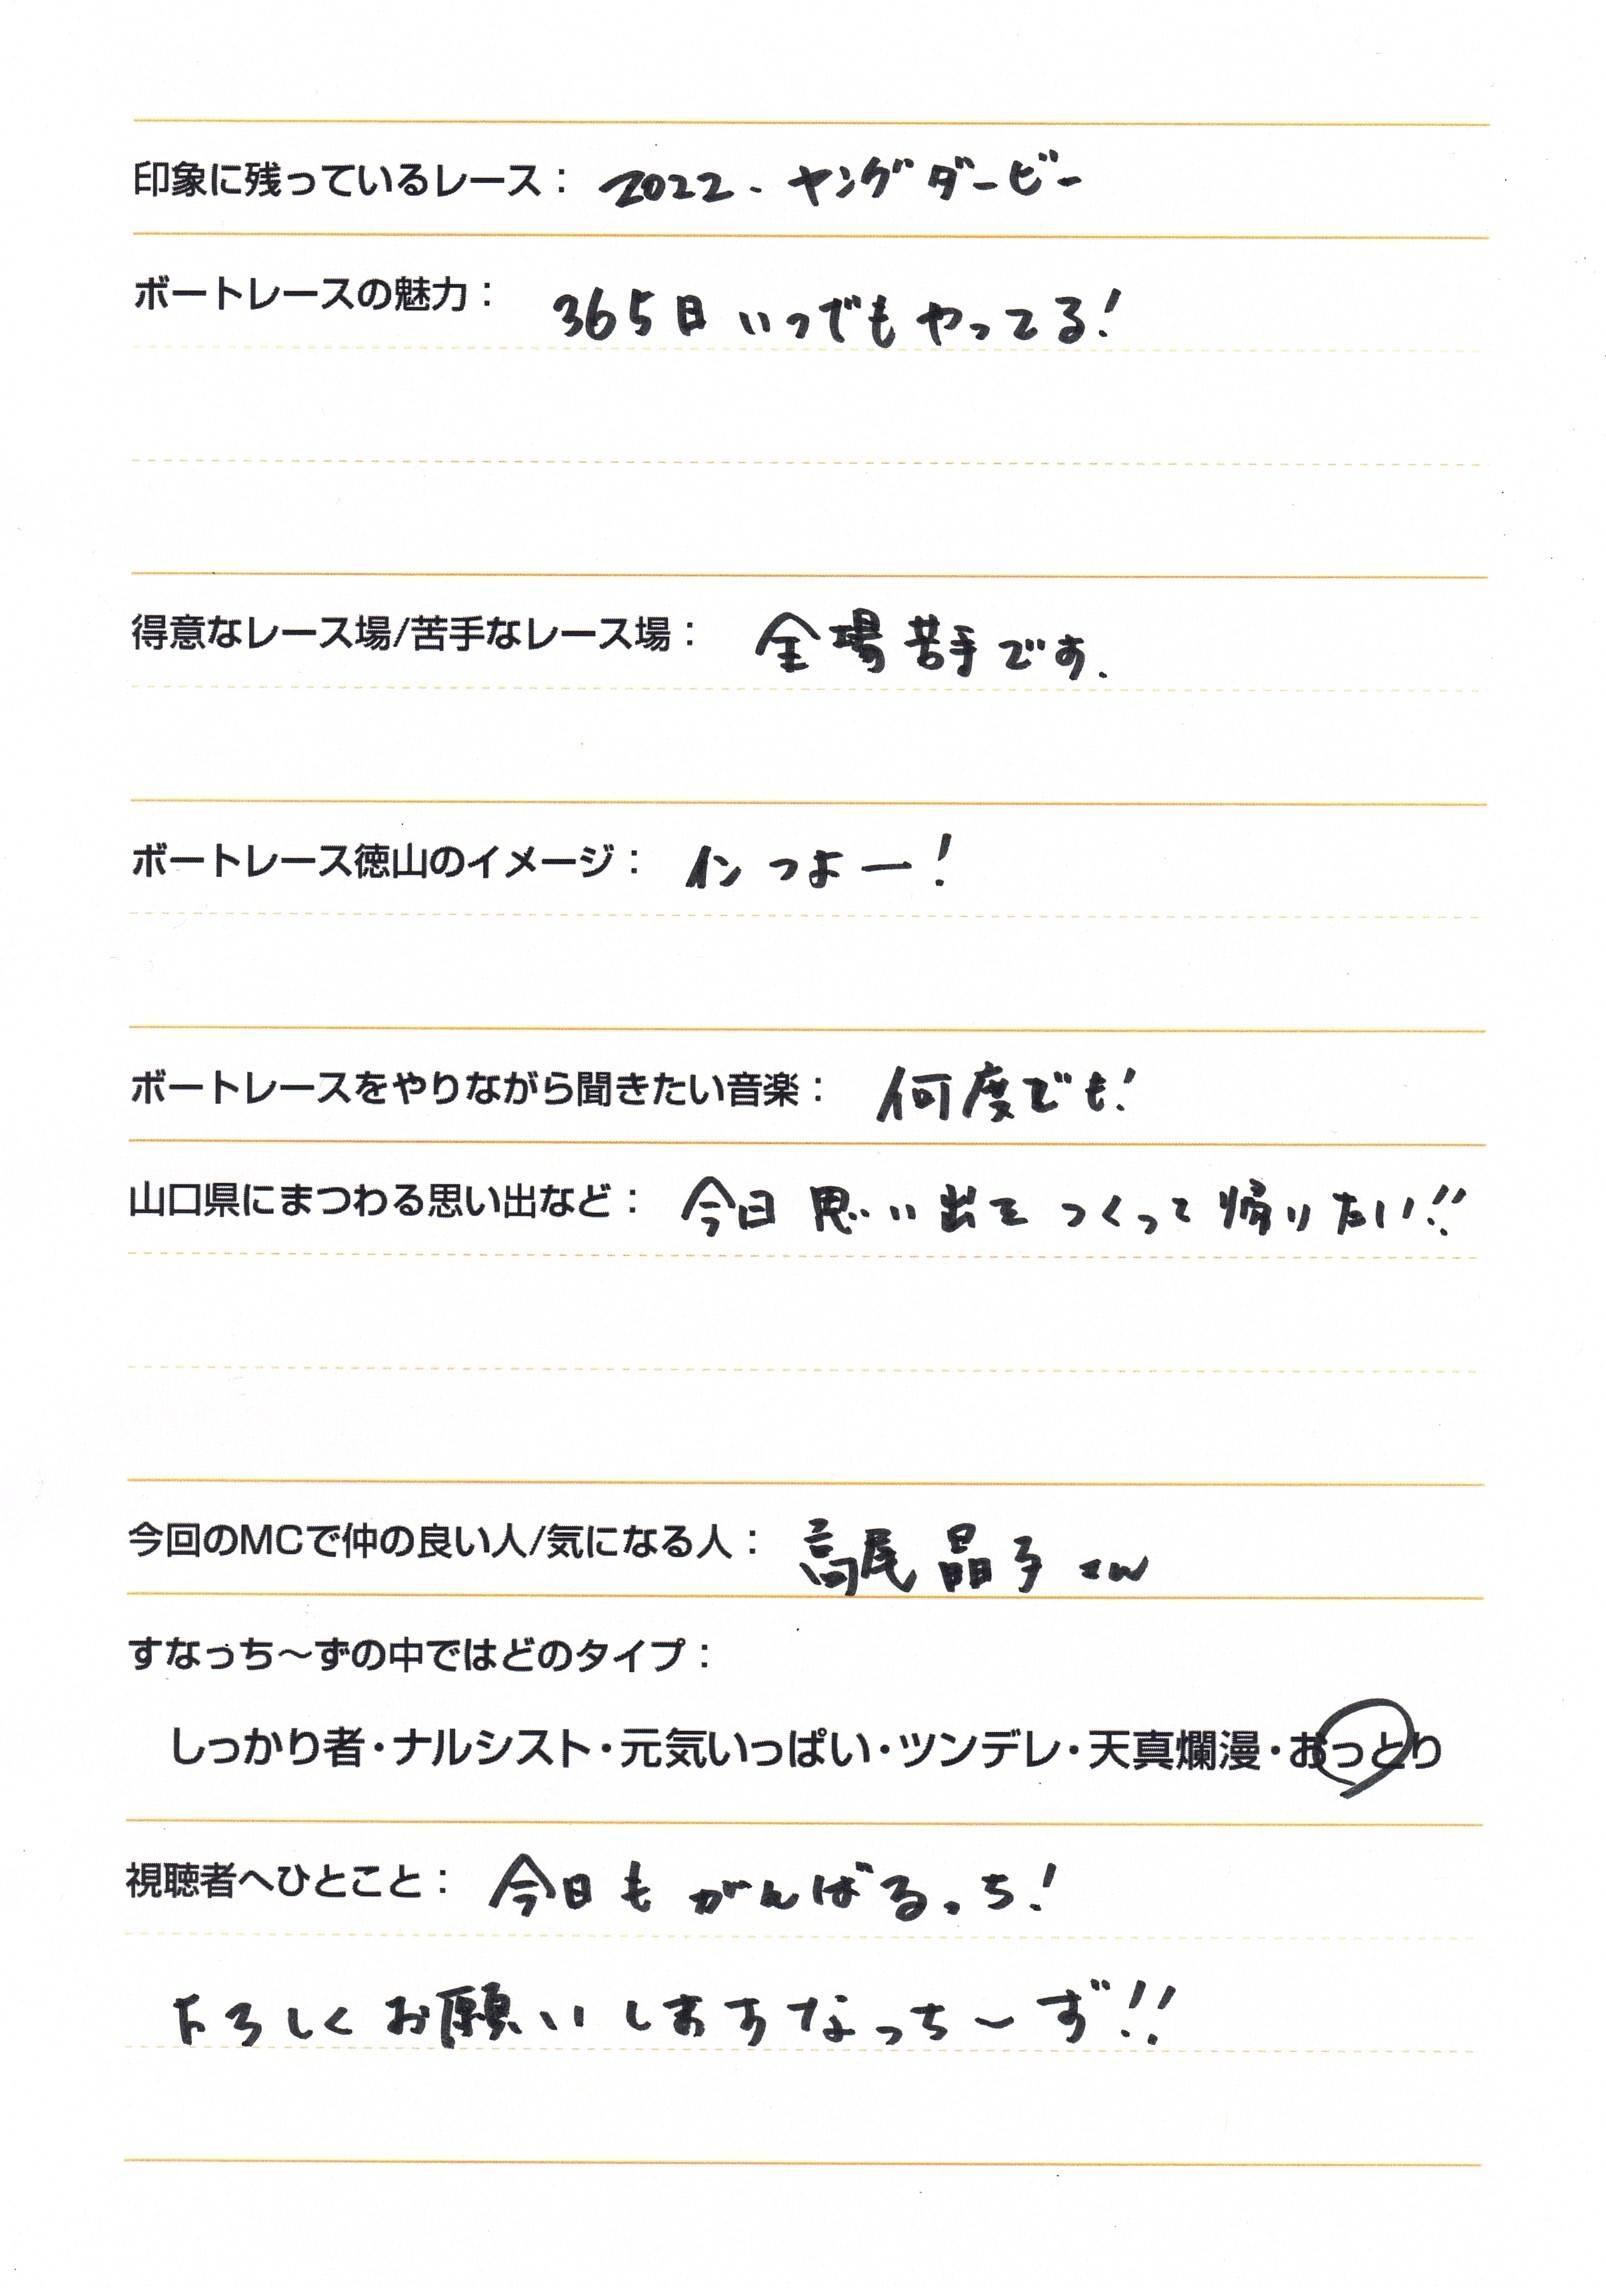 印象に残っているレース： 2022. ヤングダービー
ボートレースの魅力： 365日いつでもやってる!
得意なレース場/苦手なレース場： 全場苦手です.
ボートレース徳山のイメージ： インつよー!
ボートレースをやりながら聞きたい音楽： 何度でも!
山口県にまつわる思い出など： 今日思い出をつくって帰りたい!!
今回のMCで仲の良い人/気になる人： 高尾晶子さん
すなっち〜ずの中ではどのタイプ：
しっかり者・ナルシスト・元気いっぱい・ツンデレ・天真爛漫・おっとり
視聴者へひとこと： 今日もがんばるっち!
よろしくお願いしますなっち〜ず!!